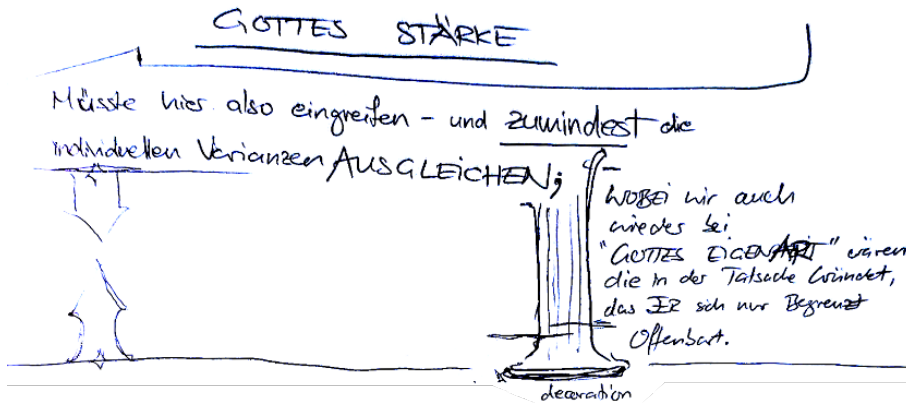 GOTTES STÄRKE
Müsste hier also eingreifen - und zumindest die
individuellen Varianzen AUSGLEICHEN;
WOBEI wir auch
wieder bei
"GOTTES EIGENART" wären
die in der Tatsache Gründet,
das ER sich nur Begrenzt
Offenbart.
decoration